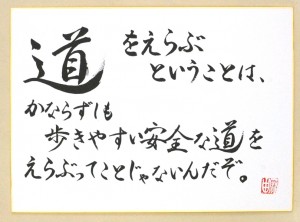 道をえらぶ
ということは、
かならずしも
歩きやすい安全な道を
えらぶってことじゃないんだぞ。